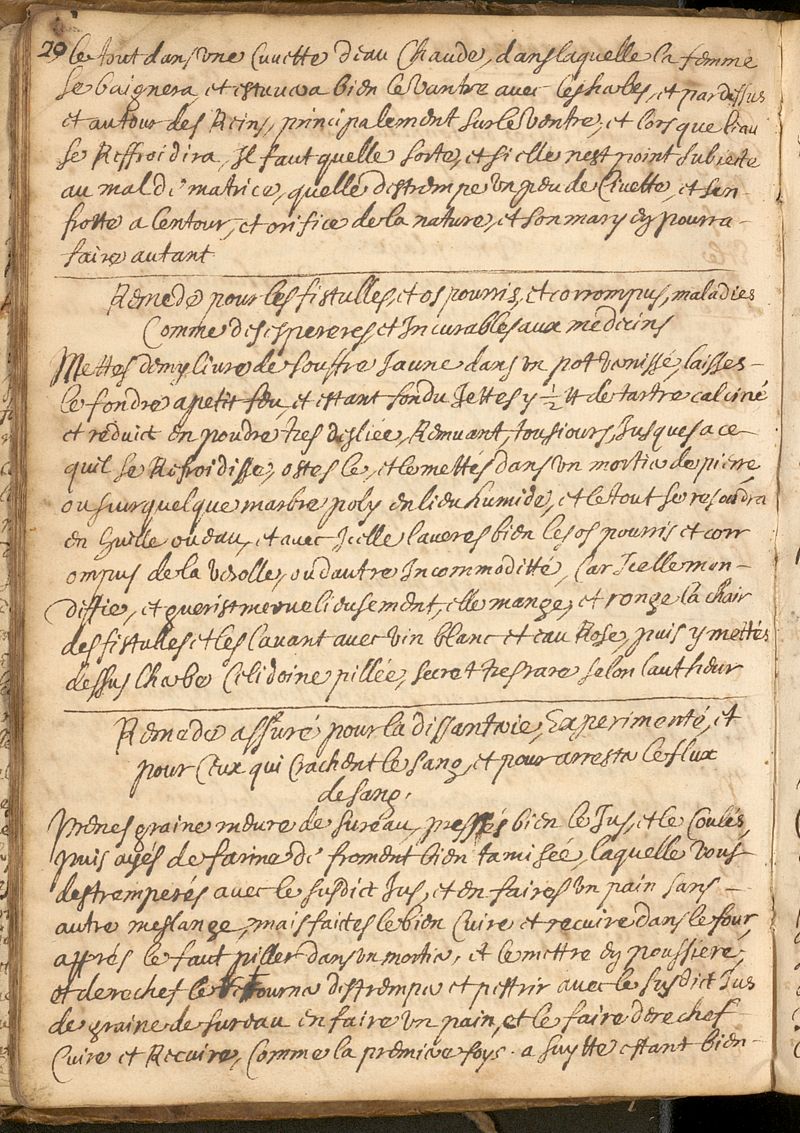 20
le tout dans une Cuvette deau Chaude, dans laquelle la femme
se baignera, et estuvera bien le vantre avec les herbes, et par dessus
et autour des Reins, principalement sur le ventre, et lors que leau
se Reffroidira, Il faut quelle sorte, et si elle nest point subiecte
au mal de matrice, quelle destrempe un peu de Civette, et sen
frotte a lentour, et orifice de la nature, et son mary en pourra
faire autant
Remede pour les fistulles, et os pourris, et corrompus, maladies
Comme desespereres et Incurables aux medecins
Mettes demy livre de souffre Jaune dans un pot vernissé, laisses
le fondre a petit feu, et estant fondu Jettes y ½ tt de tartre calciné
et reduict en poudre tres desliée, Remuant, tousiours, Jusques a ce
quil se Refroidisse, ostes le, et le mettés dans un mortier de pierre
ou sur quelque marbre poly en lieu humide, et le tout se resoudra
en huille ou eau, et avec Icelle laveres bien les os pourris et corr
ompus de la verolle, ou dautre Incommoditte, Car Icelle mon-
diffie, et guerist merveilieusement, elle mange, et ronge la chair
des fistulles et les lavant avec vin blanc et eau Rose, puis y mettés
dessus lherbe Celidoine pillée, secret tres rare selon lautheur
Remede assuré pour la dissanterie, Experimenté, et
pour Ceux qui Crachent le sang, et pour arrester le flux
de sang.
Prenes graine meure de sureau, pressés bien le Jus, et le Coulés,
puis ayés de farine de froment bien tamisée, laquelle vous
destremperés avec le susdict Jus, et en faires un pain sans
autre meslange, mais faictes le bien Cuire et recuire dans le four,
apprés le faut piller dans un mortier, et le mettre en poussiere,
et derechef le retourner destremper et pestrir avec le susdict Jus
de graine de sureau en faire un pain, et le faire derechef
Cuire et Recuire, Comme la premiere foys. a suytte estant bien-